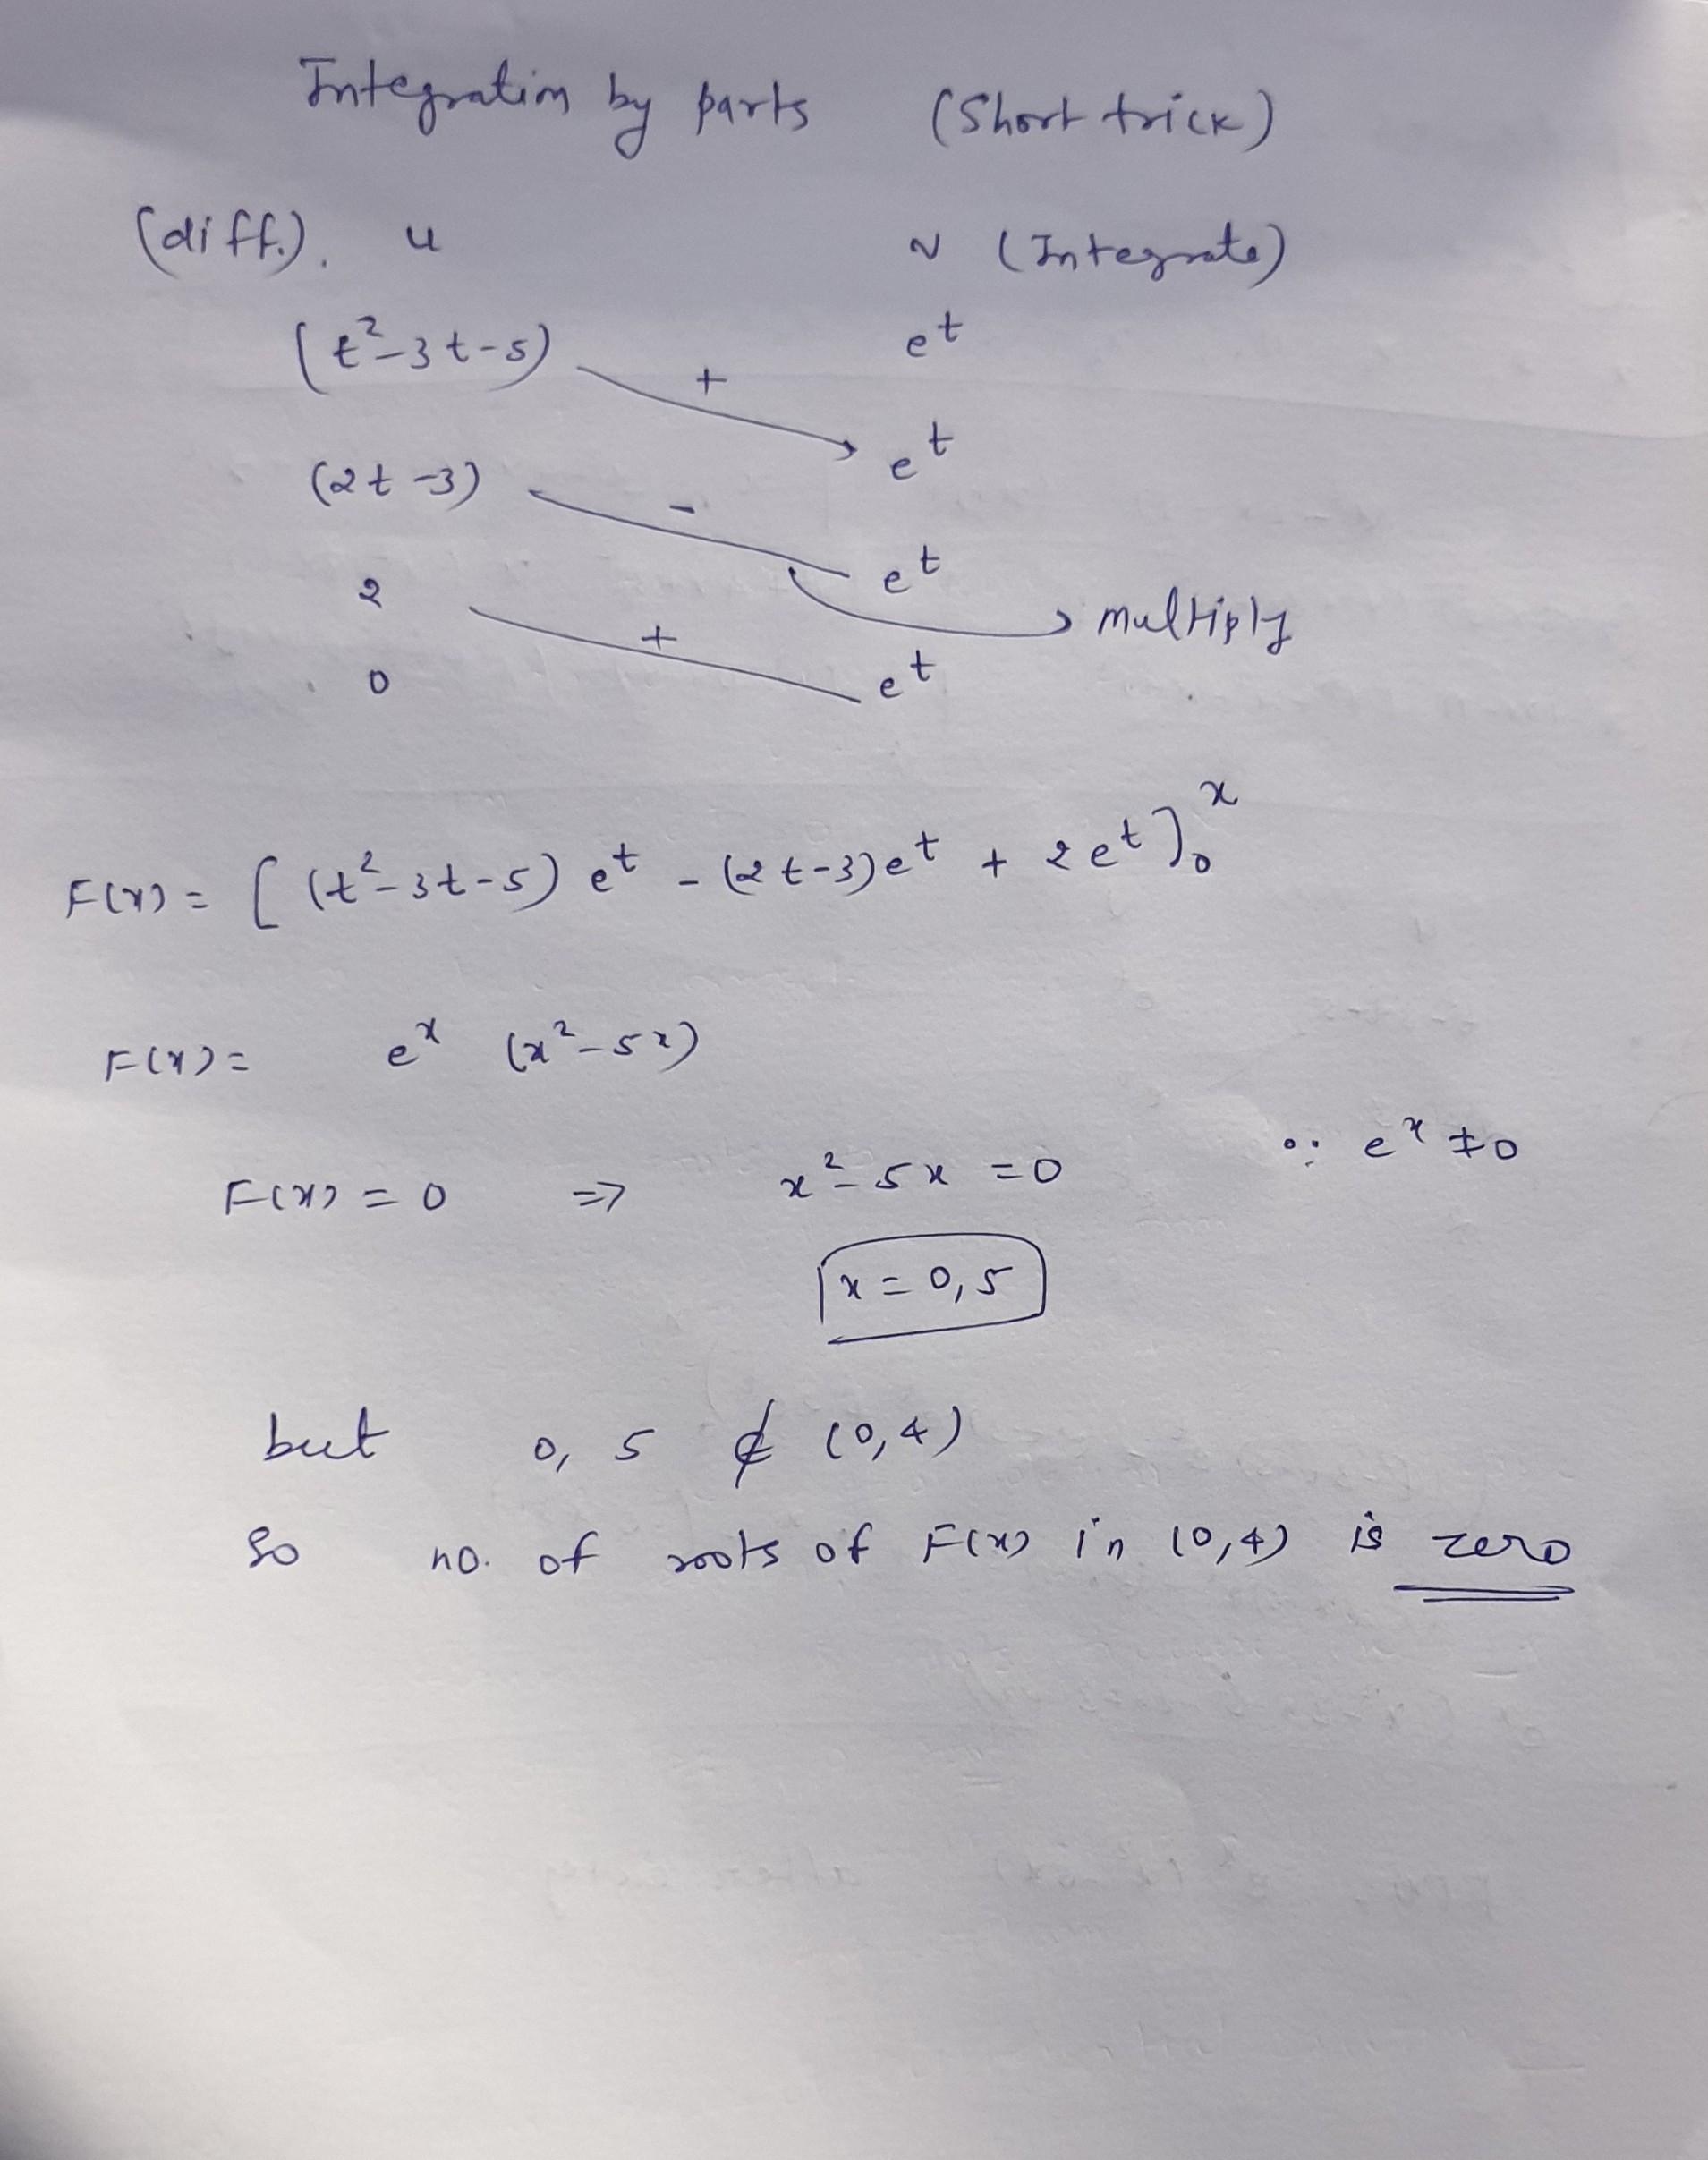 Integration by parts (Short trick)
(diff.). u v (Integrate)
(t²-3t-5) + e^t
e^t
(2t-3) -
e^t
2 multiply
+
0 e^t
F(x) = [(t²-3t-5) e^t - (2t-3)e^t + 2e^t]₀^x
F(x) = e^x (x²-5x)
F(x) = 0 => x²-5x = 0 ∵ e^x ≠ 0
x = 0, 5
but 0, 5 ∉ (0,4)
So no. of roots of F(x) in (0,4) is zero